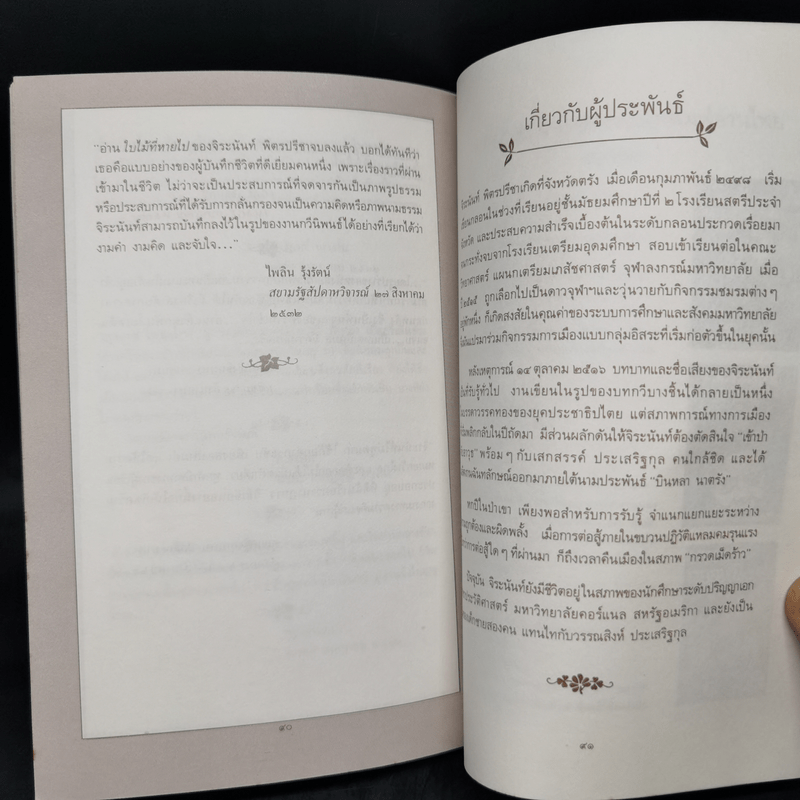 "อ่าน ใบไม้ที่หายไป ของจิระนันท์ พิตรปรีชาจบลงแล้ว บอกได้ทันทีว่า
เธอคือแบบอย่างของผู้บันทึกชีวิตที่ดีเยี่ยมคนหนึ่ง เพราะเรื่องราวที่ผ่าน
เข้ามาในชีวิต ไม่ว่าจะเป็นประสบการณ์ที่จดจารกันเป็นภาพรูปธรรม
หรือประสบการณ์ที่ได้รับการกลั่นกรองจนเป็นความคิดหรือภาพนามธรรม
จิระนันท์สามารถบันทึกลงไว้ในรูปของงานกวีนิพนธ์ได้อย่างที่เรียกได้ว่า
งามคำ งามคิด และจับใจ..."
ไพลิน รุ้งรัตน์
สยามรัฐสัปดาหวิจารณ์ ๒๗ สิงหาคม
๒๕๓๒
๙๐
เกี่ยวกับผู้ประพันธ์
จิระนันท์ พิตรปรีชาเกิดที่จังหวัดตรัง เมื่อเดือนกุมภาพันธ์ ๒๔๙๘ เริ่ม
เขียนกลอนในช่วงที่เรียนอยู่ชั้นมัธยมศึกษาปีที่ ๒ โรงเรียนสตรีประจำ
จังหวัด และประสบความสำเร็จเบื้องต้นในระดับกลอนประกวดเรื่อยมา
จนกระทั่งจบจากโรงเรียนเตรียมอุดมศึกษา สอบเข้าเรียนต่อในคณะ
วิทยาศาสตร์ แผนกเตรียมเภสัชศาสตร์ จุฬาลงกรณ์มหาวิทยาลัย เมื่อ
ปี ๒๕๑๕ ถูกเลือกไปเป็นดาวจุฬาฯและวุ่นวายกับกิจกรรมชมรมต่างๆ
อยู่พักหนึ่ง ก็เกิดสงสัยในคุณค่าของระบบการศึกษาและสังคมมหาวิทยาลัย
จึงผันแปรมาร่วมกิจกรรมการเมืองแบบกลุ่มอิสระที่เริ่มก่อตัวขึ้นในยุคนั้น
หลังเหตุการณ์ ๑๔ ตุลาคม ๒๕๑๖ บทบาทและชื่อเสียงของจิระนันท์
เป็นที่รับรู้ทั่วไป งานเขียนในรูปของบทกวีบางชิ้นได้กลายเป็นหนึ่ง
ในบรรดาวรรคทองของยุคประชาธิปไตย แต่สภาพการณ์ทางการเมือง
ที่เริ่มพลิกกลับในปีถัดมา มีส่วนผลักดันให้จิระนันท์ต้องตัดสินใจ "เข้าป่า
จับอาวุธ" พร้อมๆ กับเสกสรรค์ ประเสริฐกุล คนใกล้ชิด และได้
ผลิตงานฉันทลักษณ์ออกมาภายใต้นามประพันธ์ "บินหลา นาตรัง"
หกปีในป่าเขา เพียงพอสำหรับการรับรู้ จำแนกแยกแยะระหว่าง
ความถูกต้องและผิดพลั้ง เมื่อการต่อสู้ภายในขบวนปฏิวัติแหลมคมรุนแรง
กว่าการต่อสู้ใดๆ ที่ผ่านมา ก็ถึงเวลาคืนเมืองในสภาพ "กรวดเม็ดร้าว"
ปัจจุบัน จิระนันท์ยังมีชีวิตอยู่ในสภาพของนักศึกษาระดับปริญญาเอก
สาขาประวัติศาสตร์ มหาวิทยาลัยคอร์แนล สหรัฐอเมริกา และยังเป็น
แม่ของเด็กชายสองคน แทนไทกับวรรณสิงห์ ประเสริฐกุล
๙๑